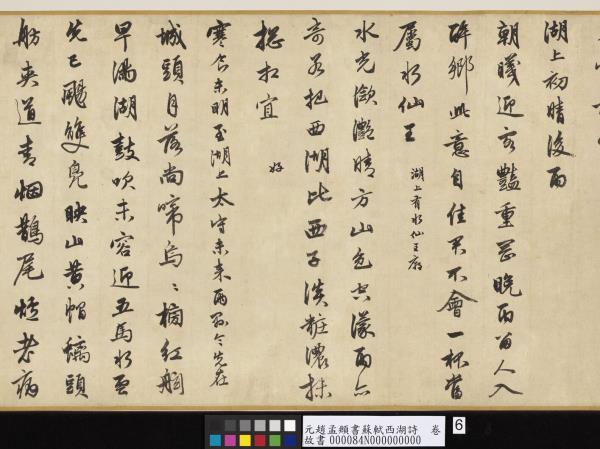 湖上初晴後雨
朝曦迎客豔重岡晚雨留人入
醉鄉此意自佳君不會一杯當
屬水仙王 湖上有水仙王廟
水光瀲灩晴方山色空濛雨亦
奇若把西湖比西子淡粧濃抹
揔相宜 好
寒食未明至湖上太守未来兩縣令先在
城頭月落尚啼烏〻榜紅舷
早滿湖鼓吹未容迎五馬水雲
先已颺雙鳧映山黄帽螭頭
舫夾道青烟鵲尾爐老病
元趙孟頫書蘇軾西湖詩 卷
故書 000084N000000000
6